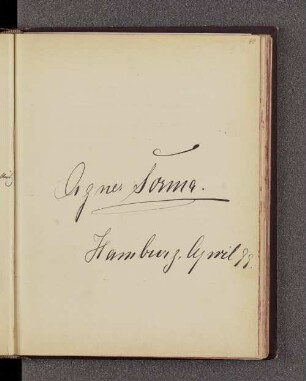 Agnes Sorma.
Hamburg. April 98